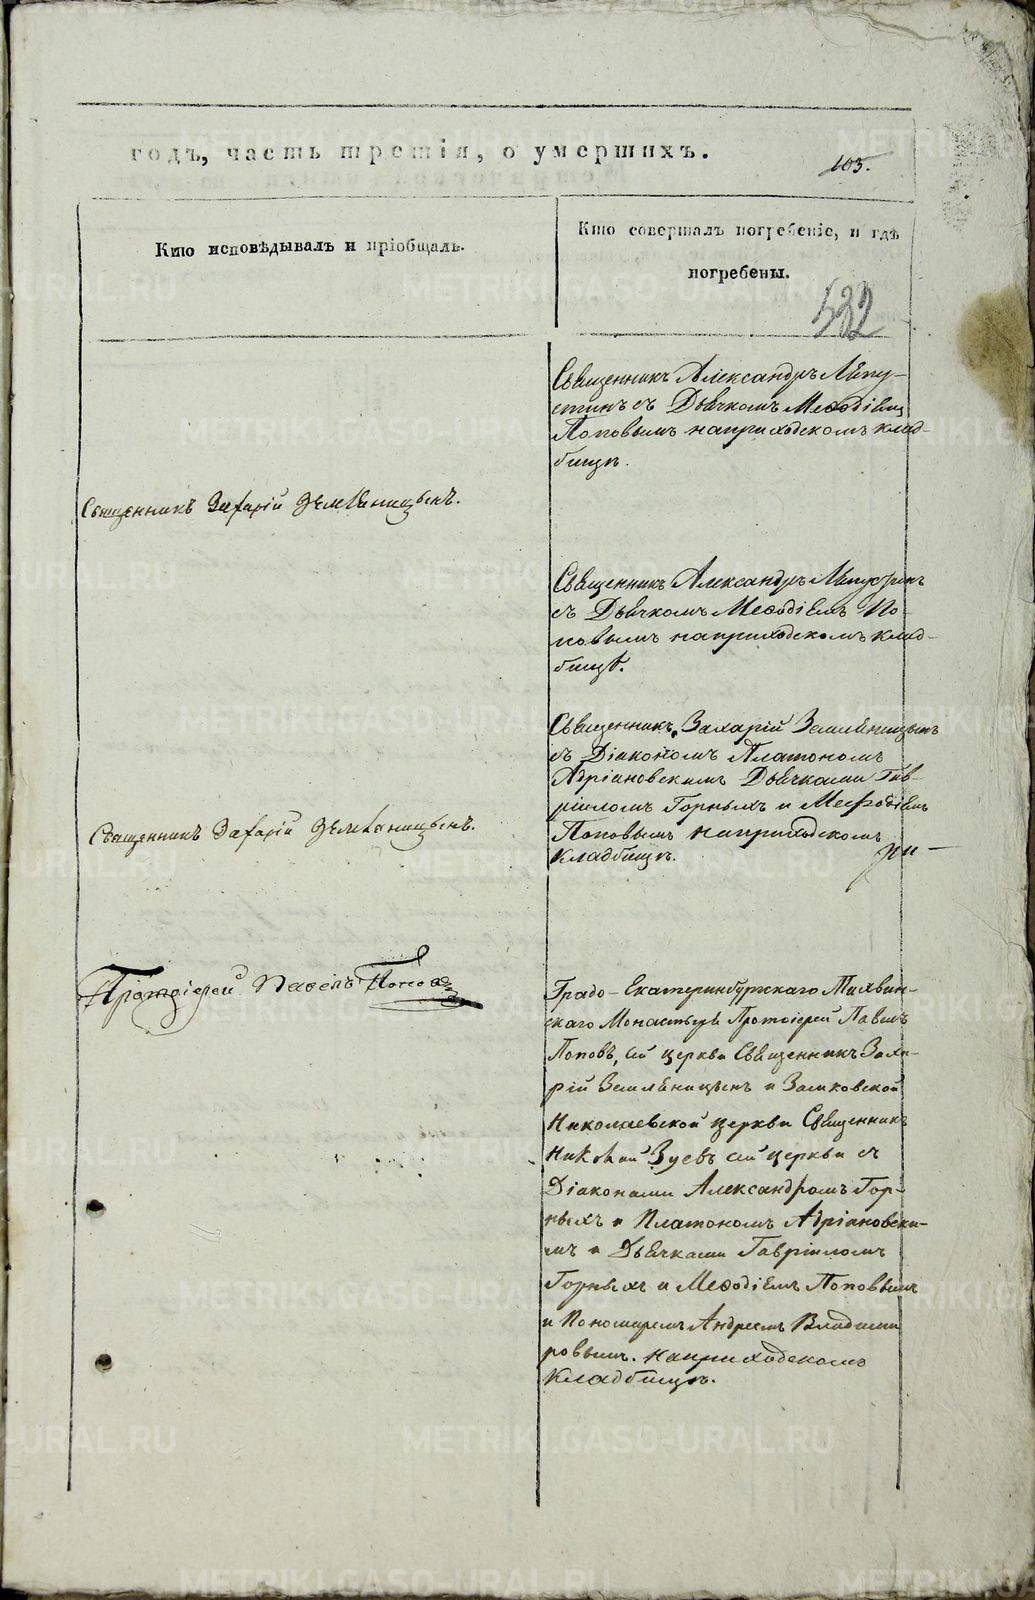 годъ, часть третія, о умершихъ.
103.
Кто исповѣдывалъ и пріобщалъ.
Кто совершалъ погребеніе, и гдѣ
погребены.
532
Священникъ Александръ
съ Дьячкомъ Меѳодіемъ
Поповымъ наприходскомъ клад-
бищѣ.
Священникъ Захарій Земляницынъ.
Священникъ Александръ
съ Дьячкомъ Меѳодіемъ По-
повымъ наприходскомъ клад-
бищѣ.
Священникъ Захарій Земляницынъ
съ Діакономъ Платономъ
Адріановскимъ Дьячками Гав-
ріиломъ Горныхъ и Меѳодіемъ
Поповымъ наприходскомъ
кладбищѣ.
Священникъ Захарій Земляницынъ.
Протоіерей Павелъ Поповъ
Градо-Екатеринбургскаго Тихвин-
скаго Монастыря Протоіерей Павелъ
Поповъ, сей церкви Священникъ Заха-
рій Земляницынъ и Замковской
Николаевской церкви Священникъ
Зуевъ сей церкви съ
Діаконами Александромъ Гор-
ныхъ и Платономъ Адріановски-
мъ и Дьячками Гавріиломъ
Горныхъ и Меѳодіемъ Поповымъ
и Пономаремъ Андреемъ Владими
ровымъ. наприходскомъ
кладбищѣ.
METRIKI.GASO-URAL.RU